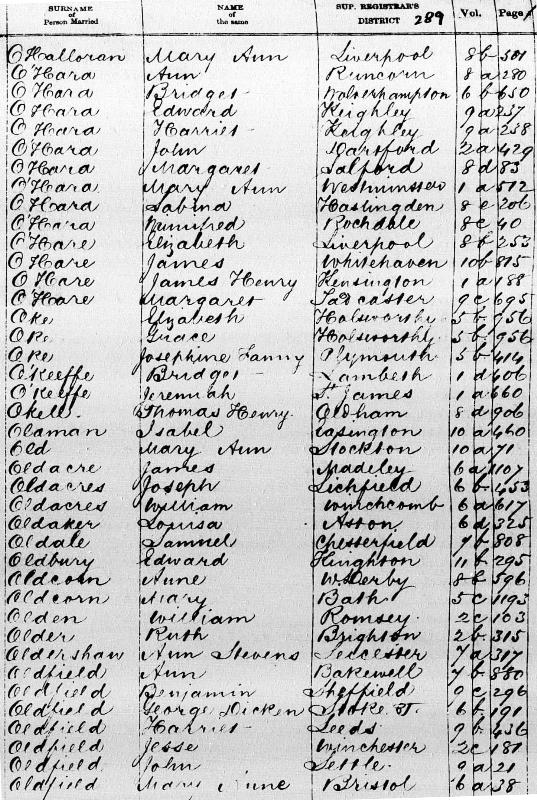 SURNAME of Person Married NAME of the same SUP. REGISTRAR'S DISTRICT 289 Vol. Page
O'Halloran Mary Ann Liverpool 8b 501
O'Hara Ann Runcorn 8a 280
O'Hara Bridget Wolverhampton 6b 650
O'Hara Edward Keighley 9a 237
O'Hara Harriet Keighley 9a 238
O'Hara John Dartford 2a 429
O'Hara Margaret Salford 8d 83
O'Hara Mary Ann Westminster 1a 512
O'Hara Sabina Haslingden 8e 206
O'Hara Winifred Rochdale 8c 40
O'Hare Elizabeth Liverpool 8b 253
O'Hare James Whitehaven 10b 815
O'Hare James Henry Kensington 1a 188
O'Hare Margaret Tadcaster 9c 695
Oke Elizabeth Holsworthy 5b 956
Oke Grace Holsworthy 5b 956
Oke Josephine Fanny Plymouth 5b 414
O'Keeffe Bridget Lambeth 1d 406
O'Keeffe Jeremiah St. James 1a 660
Okell Thomas Henry Oldham 8d 906
Olaman Isabel Easington 10a 460
Old Mary Ann Stockton 10a 71
Oldacre James Madeley 6a 1107
Oldacres Joseph Lichfield 6b 453
Oldacres William Winchcomb 6a 617
Oldaker Louisa Aston 6d 325
Oldale Samuel Chesterfield 7b 808
Oldbury Edward Kington 11b 295
Oldcorn Anne W. Derby 8b 596
Oldcorn Mary Bath 5c 1193
Olden William Romsey 2c 103
Older Ruth Brighton 2b 315
Oldershaw Ann Stevens Leicester 7a 317
Oldfield Ann Bakewell 7b 880
Oldfield Benjamin Sheffield 9c 296
Oldfield George Dicken Stoke T. 6b 191
Oldfield Harriet Leeds 9b 436
Oldfield Jesse Winchester 2c 181
Oldfield John Settle 9a 21
Oldfield Mary Anne Bristol 6a 38